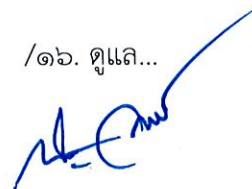 /๑๖. ดูแล...